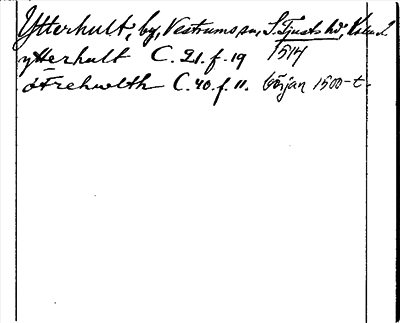 Ytterhult, by, Vestrums sn, S. Tjusts hd,
ytterhult C. 21. f. 19 1514
ötrehwlth C. 40. f. 11. början 1500-t.